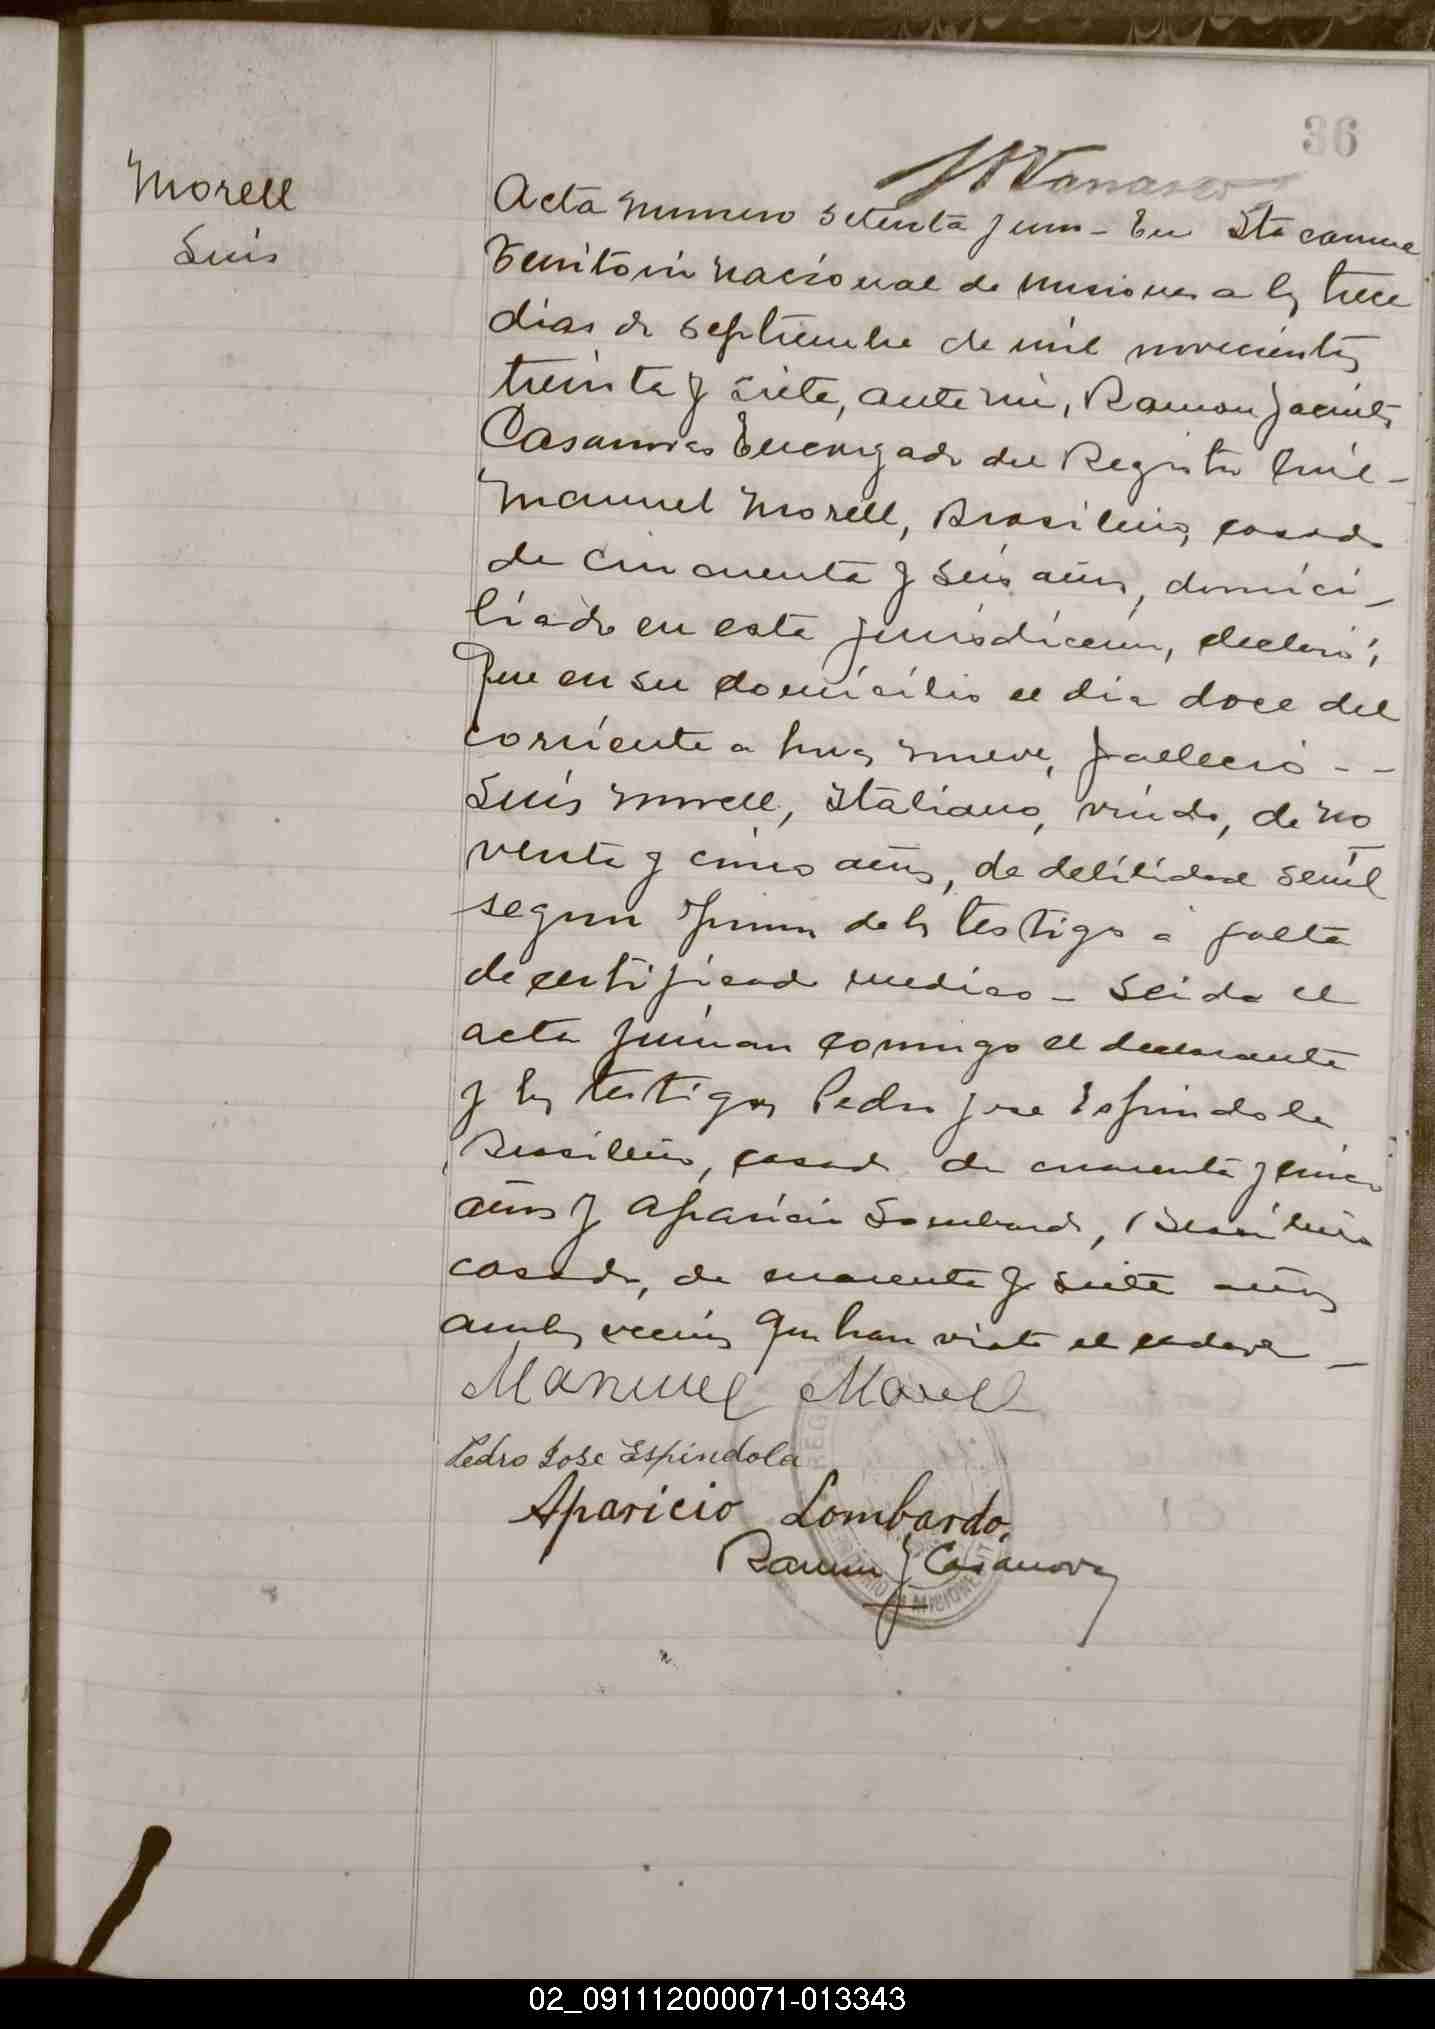 36
Morell
Luis
Acta numero setenta y uno - En Sta
Territorio nacional de Misiones a los trece
dias de septiembre de mil novecientos
treinta y siete, ante mi, Ramon Jacinto
Casanovas Encargado del Registro Civil -
Manuel Morell, Brasileño, casado
de cincuenta y seis años, domici-
liado en esta jurisdiccion, declaró;
Que en su domicilio el dia doce del
corriente a horas nueve, fallecio - -
Luis Morell, Italiano, viudo, de no
venta y cinco años, de debilidad senil
segun opinion de los testigos a falta
de certificado medico - Leida el
acta firman conmigo el declarante
y los testigos Pedro Jose Espindola
Brasileño, casado de cuarenta y cinco
años y Aparicio Lombardo, Brasileño
casado, de cuarenta y siete años
ambos vecinos que han visto el cadaver -
Manuel Morell
Pedro Jose Espindola
Aparicio Lombardo.
Ramon J Casanovas
02_091112000071-013343